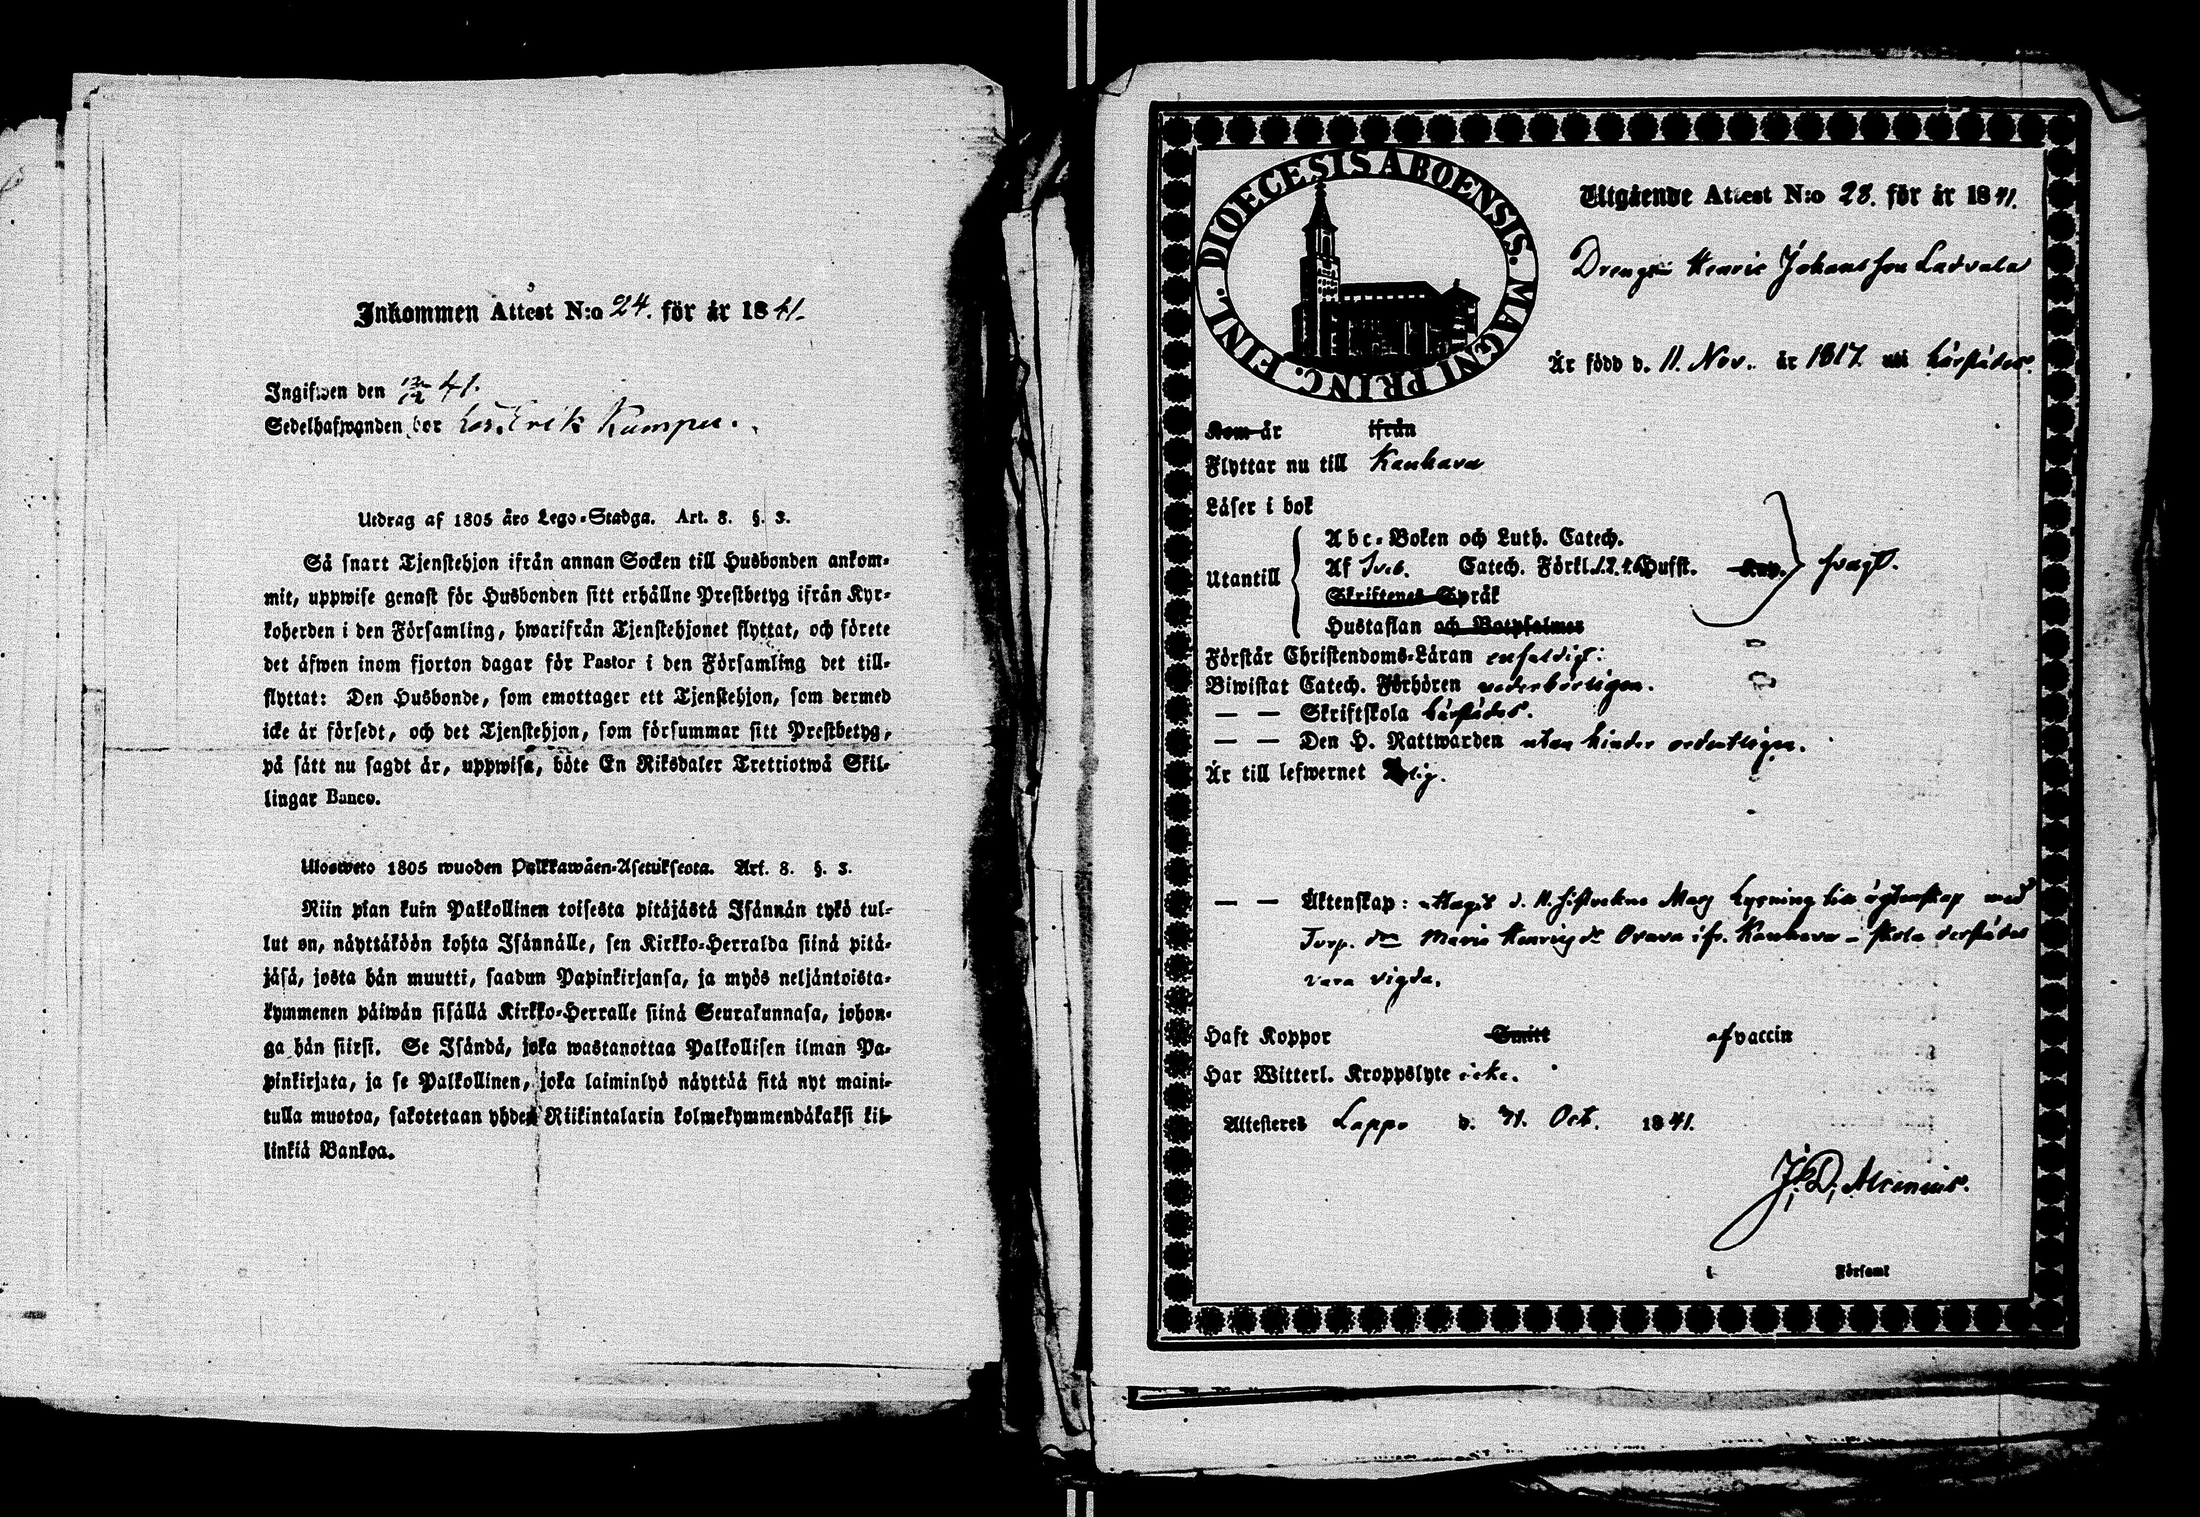 Inkommen Attest N:o 24. för år 1841.
Ingifwen den 12/12 41.
Sedelhafwanden bor hos Erik Kamppi.
Utdrag af 1805 års Lego-Stadga. Art. 8. §. 3.
Så snart Tjenstehjon ifrån annan Socken till Husbonden ankom-
mit, uppwise genast för Husbonden sitt erhållne Prestbetyg ifrån Kyr-
koherden i den Församling, hwarifrån Tjenstehjonet flyttat, och förete
det äfwen inom fjorton dagar för Pastor i den Församling det till-
flyttat: Den Husbonde, som emottager ett Tjenstehjon, som dermed
icke är försedt, och det Tjenstehjon, som försummar sitt Prestbetyg,
på sätt nu sagdt är, uppwisa, böte En Riksdaler Trettiotwå Skil-
lingar Banco.
Ulosweto 1805 wuoden Palkkawäen-Asetuksesta. Art. 8. §. 3.
Niin pian kuin Palkollinen toisesta pitäjästä Isännän tykö tul-
lut on, näyttäköön kohta Isännälle, sen Kirkko-Herralda siinä pitä-
jäsä, josta hän muutti, saadun Papinkirjansa, ja myös neljäntoista-
kymmenen päiwän sisällä Kirkko-Herralle siinä Seurakunnasa, johon-
ga hän siirsi. Se Isändä, joka wastanottaa Palkollisen ilman Pa-
pinkirjata, ja se Palkollinen, joka laiminlyö näyttää sitä nyt maini-
tulla muotoa, sakotetaan yhden Riikintalarin kolmekymmendäkaksi kil-
linkiä Bankoa.
DIOECESIS ABOENSIS. MAGNI PRINC. FINL.
Utgående Attest N:o 28. för år 1841.
Drengen Henric Johansson Ladvala
Är född d. 11. Nov. år 1817. uti härstädes.
Kom år ifrån
Flyttar nu till Kauhava
Läser i bok
Abc-Boken och Luth. Catech.
Af Sveb. Catech. Förkl. Hufst. Kap. svagt.
Utantill
Skriftenes Språk
Hustaflan och Botpsalmer
Förstår Christendoms-Läran enfaldigt:
Biwistat Catech. Förhören vederbörligen.
— — Skriftskola härstädes.
— — Den H. Nattwarden utan hinder ordentligen.
Är till lefwernet
— — Äktenskap: Lysning till ägtenskap med
Torp. Maria Henricsdr Orava ifr. Kauhava - skola derstädes
vara vigda.
Haft Koppor Smitt af vaccin
Har Witterl. Kroppslyte icke.
Attesteres Lappo d. 31. Oct. 1841.
J. D. Alcenius.
i Församl